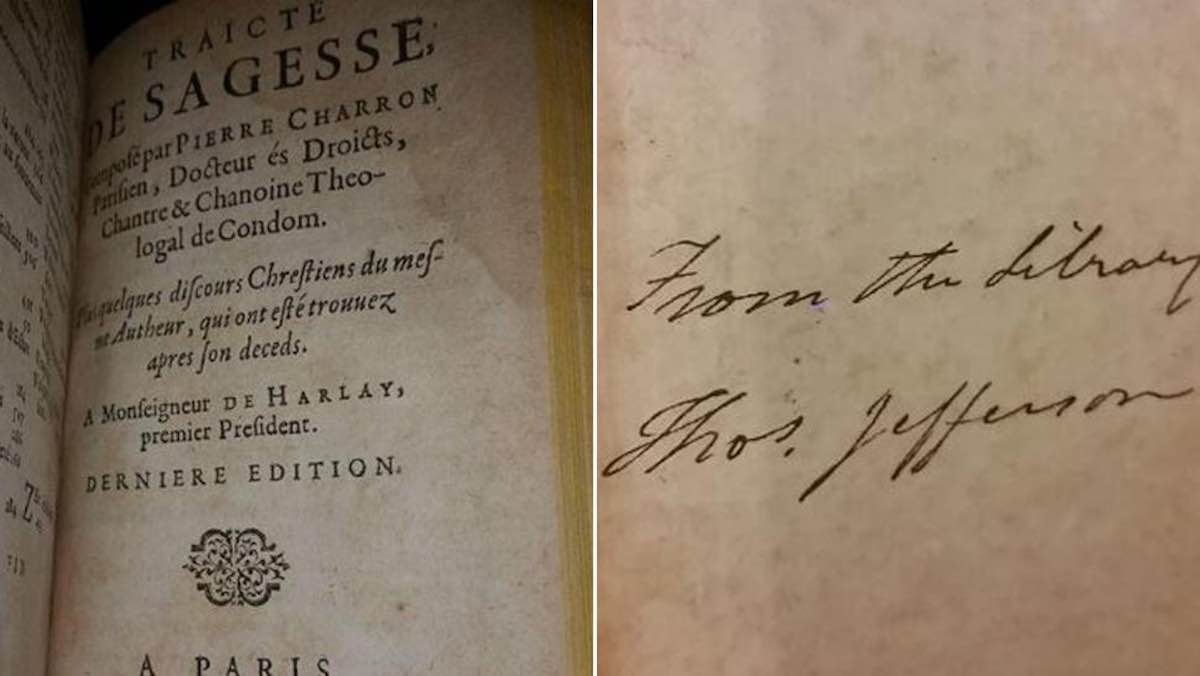 TRAICTE
DE SAGESSE,
Composé par PIERRE CHARRON
Parisien, Docteur és Droicts,
Chantre & Chanoine Theo-
logal de Condom.
Plus quelques discours Chrestiens du mes-
me Autheur, qui ont esté trouuez
apres son deceds.
A Monseigneur DE HARLAY,
premier President.
DERNIERE EDITION.
A PARIS
From the Library
Thos. Jefferson